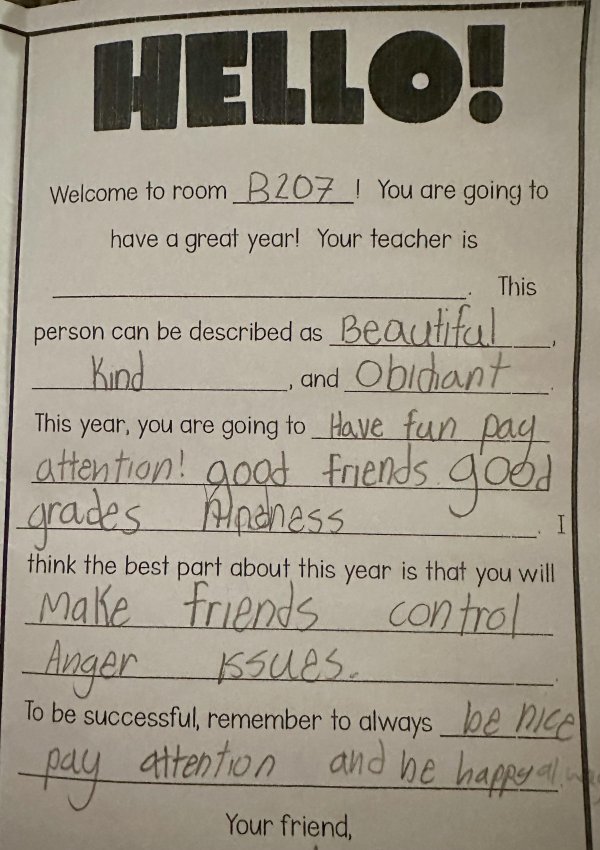 HELLO!
Welcome to room B207! You are going to
have a great year! Your teacher is
. This
person can be described as Beautiful,
Kind, and Obidiant.
This year, you are going to Have fun pay
attention! good friends. good
grades Kindness. I
think the best part about this year is that you will
Make friends control
Anger issues..
To be successful, remember to always be nice
pay attention and be happy always.
Your friend,